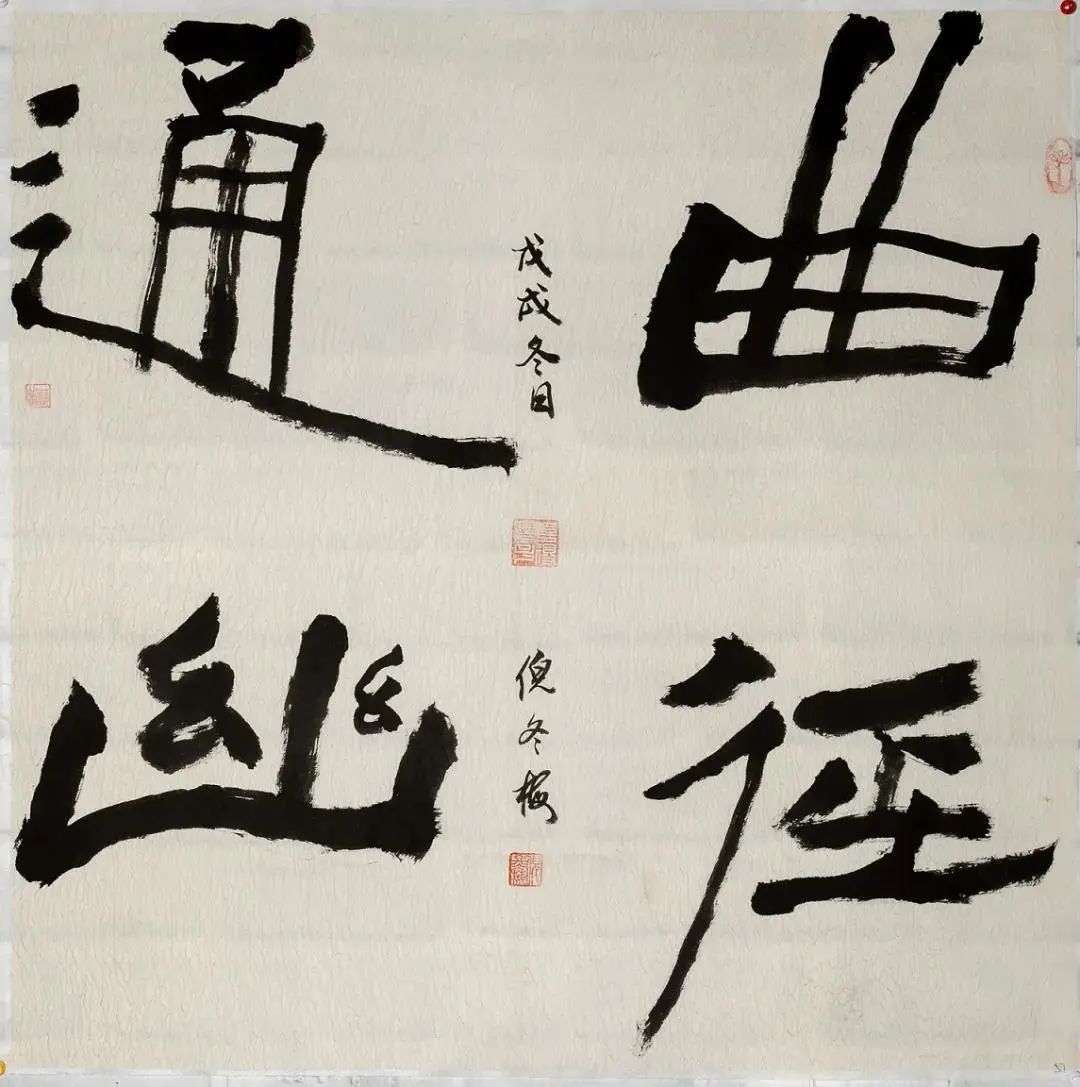 曲径
通幽
戊戌冬日
倪冬梅